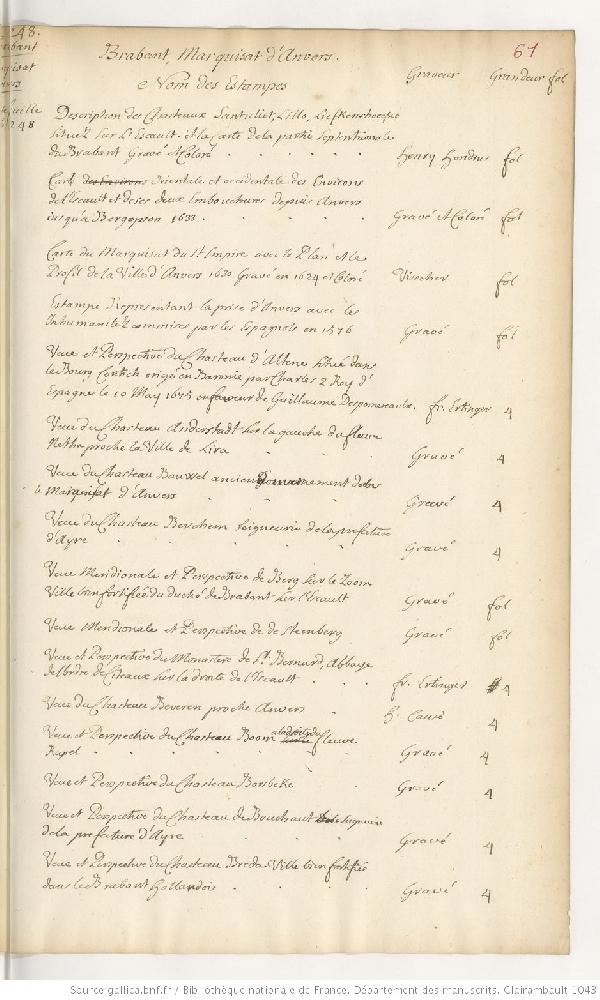 248.
61
Brabant, Marquisat d'Anvers.
Nom des Estampes Graveur Grandeur fol
248
Description des Chasteaux Santuliet, Lillo, Liefkenshoecque
situez sur L'Escault et la Carte de la partie septentrionale
du Brabant Gravé et Coloré Henry Hondius fol
Carte des Environs Orientale et occidentale des Environs
de l'Escault et de ses deux Embouchures depuis Anvers
jusqu'a Bergopsom 1633. Gravé et Coloré fol
Carte du Marquisat du St Empire avec le Plan et le
Profil de la Ville d'Anvers 1630 Gravé en 1624 et Coloré Visscher fol
Estampe Representant la prise d'Anvers avec les
Inhumanitez commises par les Espagnols en 1576 Gravé fol
Veue et Perspective du Chasteau d'Altena situé dans
le Bourg Contich erigé en Baronie par Charles 2 Roy d'
Espagne le 10 May 1675 en faveur de Guillaume fr. Ertinger 4
Veue du Chasteau Anderstadt sur la gauche du fleuve
Nethe proche la Ville de Lira Gravé 4
Veue du Chasteau Bouwel ancien
Marquisat d'Anvers Gravé 4
Veue du Chasteau Berchem seigneurie de la prefecture
d'Ayre Gravé 4
Veue Meridionale et Perspective de Berg sur le Zoom
Ville bien fortifiée du duché de Brabant sur l'Escault Gravé fol
Veue Meridionale et Perspective de de Steenberg Gravé fol
Veue et Perspective du Monastere de St. Bernard, Abbaye
de l'ordre de Citeaux sur la droite de l'Escault fr. Ertinger 4
Veue du Chasteau Beveren proche Anvers H. Causé 4
Veue et Perspective du Chasteau Boom a la droite du fleuve
Rupel Gravé 4
Veue et Perspective du Chasteau Borsbeke Gravé 4
Veue et Perspective du Chasteau de Bouchaut seigneurie
de la prefecture d'Ayre Gravé 4
Veue et Perspective du Chasteau Breda Ville bien fortifiée
dans le Brabant Hollandois Gravé 4
Source gallica.bnf.fr / Bibliothèque nationale de France. Département des manuscrits. Clairambault 1043